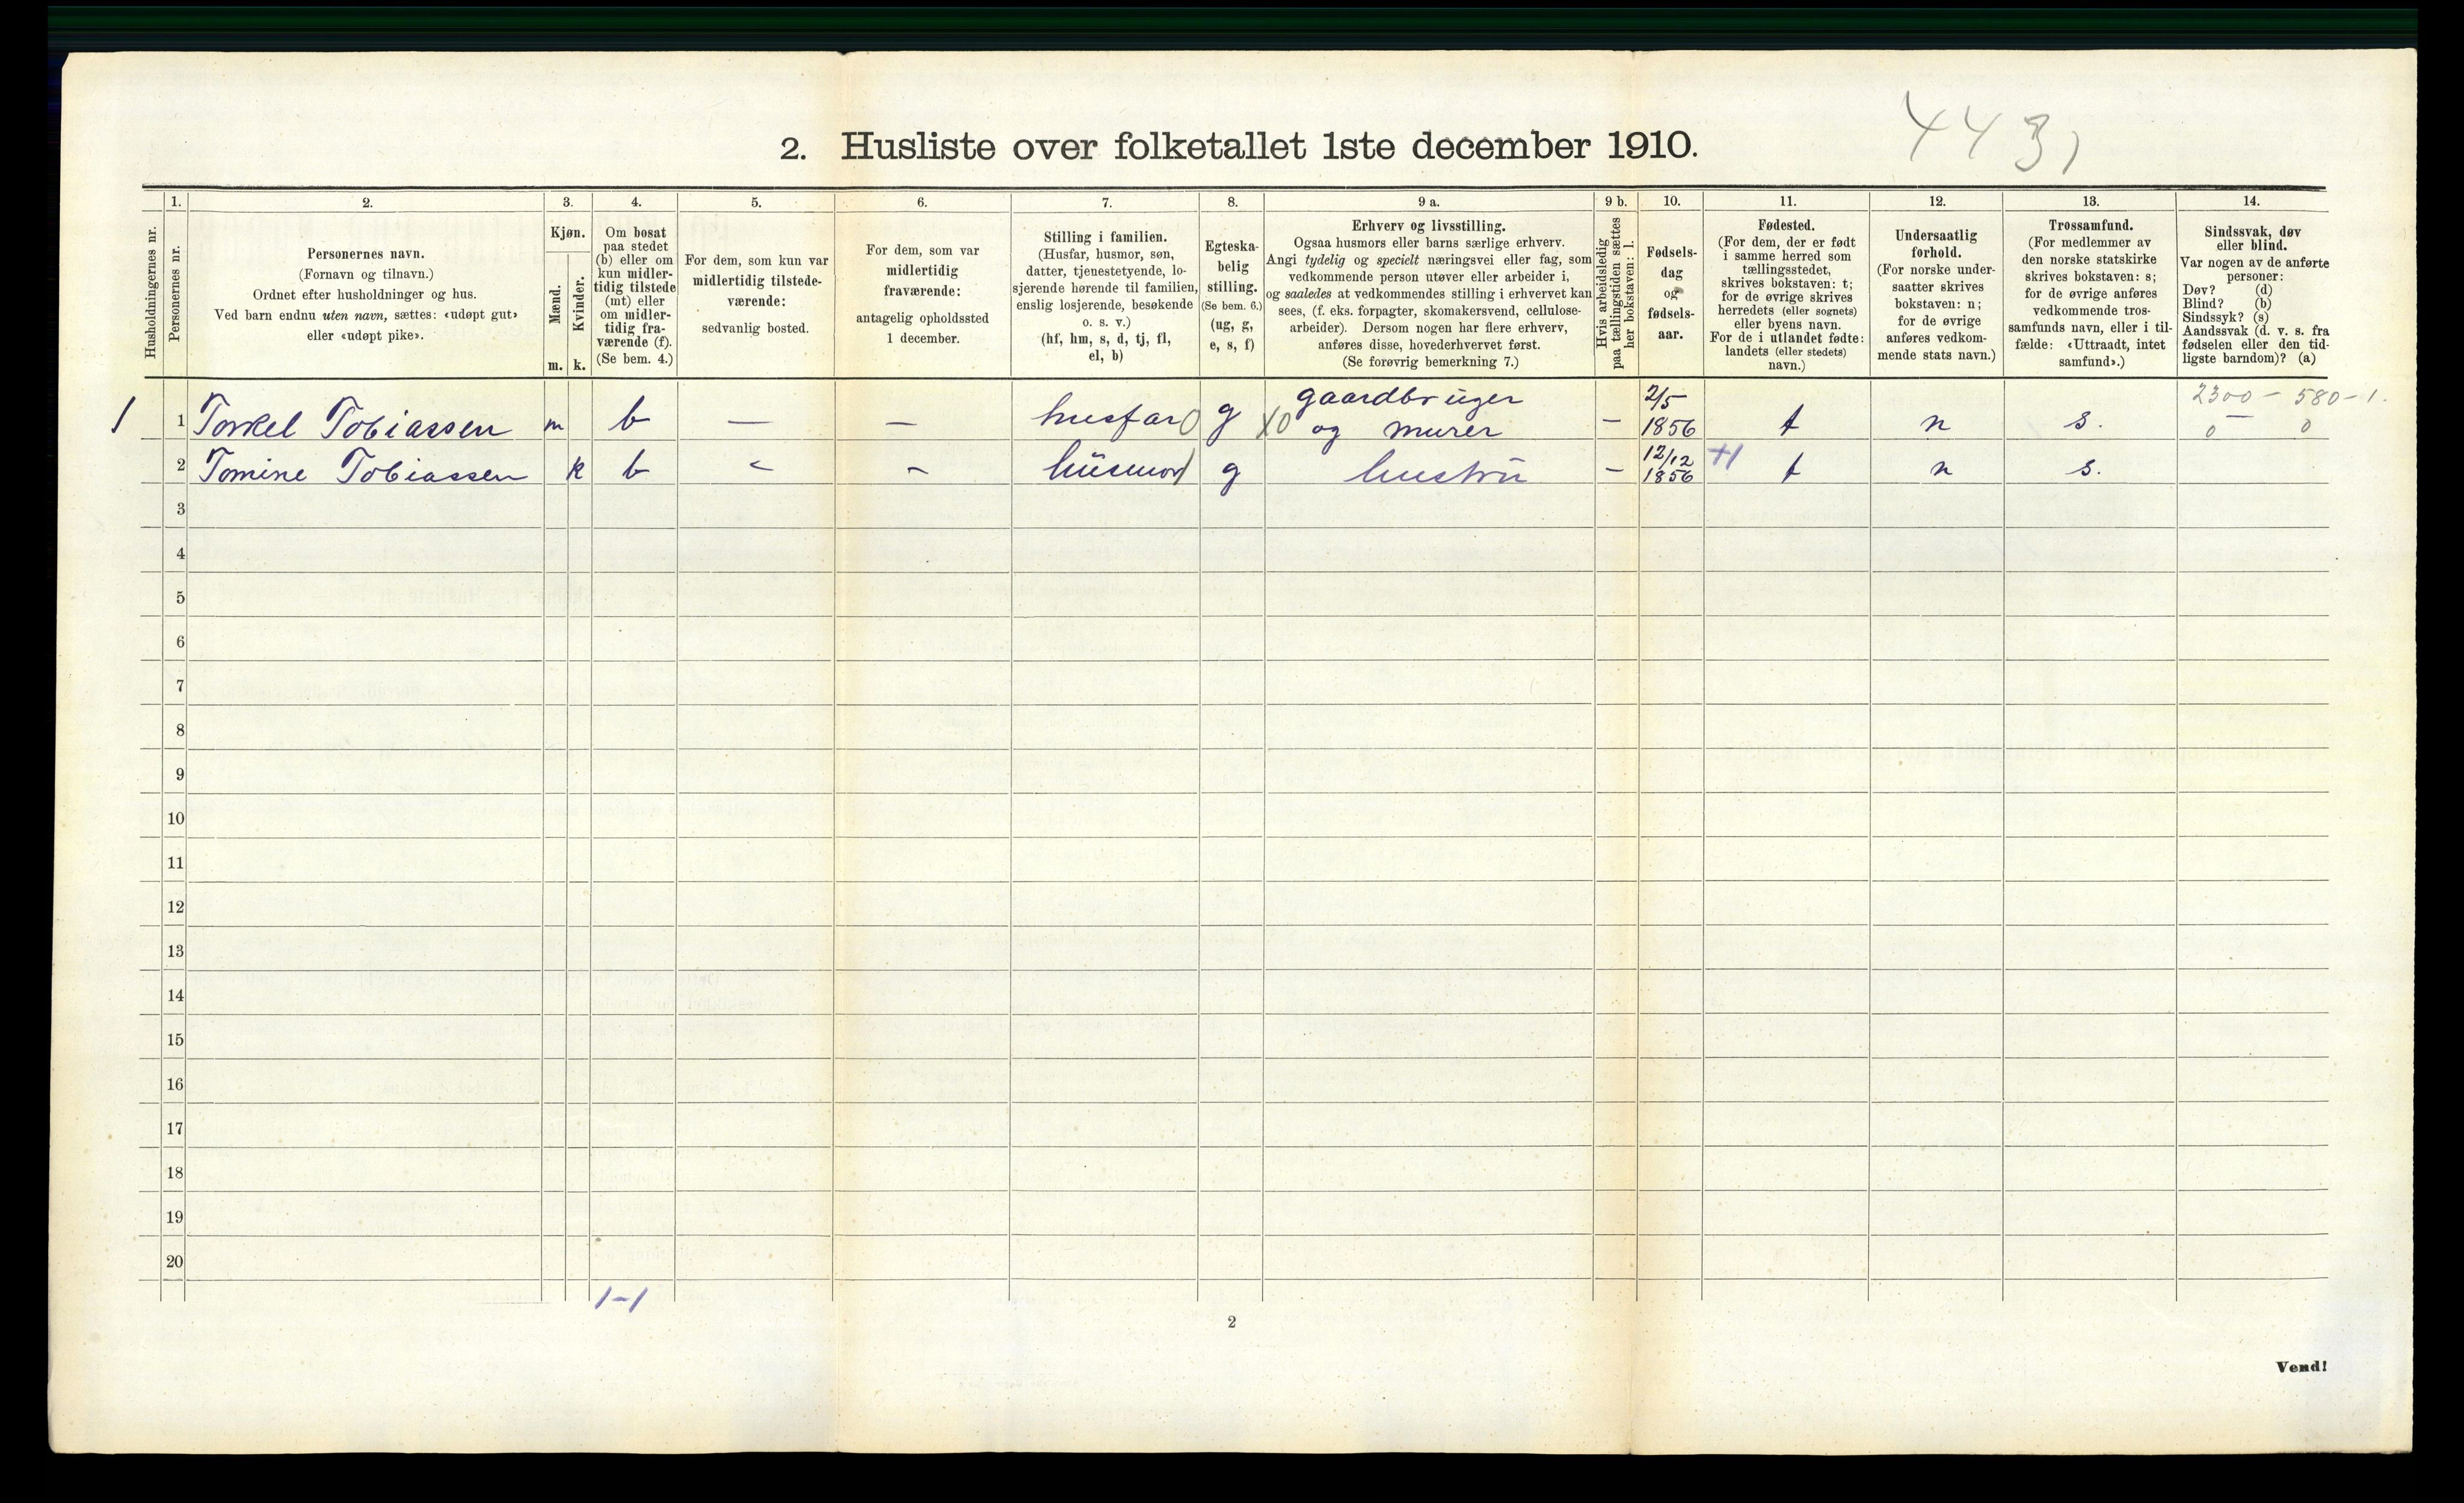 4431
2. Husliste over folketallet 1ste december 1910.
Husholdningernes nr.
1.
Personernes nr.
2.
Personernes navn.
(Fornavn og tilnavn.)
Ordnet efter husholdninger og hus.
Ved barn endnu uten navn, sættes: «udøpt gut»
eller «udøpt pike».
3.
Kjøn.
Mænd.
Kvinder.
m. k.
4.
Om bosat
paa stedet
(b) eller om
kun midler-
tidig tilstede
(mt) eller
om midler-
tidig fra-
værende (f).
(Se bem. 4.)
5.
For dem, som kun var
midlertidig tilstede-
værende:
sedvanlig bosted.
6.
For dem, som var
midlertidig
fraværende:
antagelig opholdssted
1 december.
7.
Stilling i familien.
(Husfar, husmor, søn,
datter, tjenestetyende, lo-
sjerende hørende til familien,
enslig losjerende, besøkende
o. s. v.)
(hf, hm, s, d, tj, fl,
el, b)
8.
Egteska-
belig
stilling.
(Se bem. 6.)
(ug, g,
e, s, f)
9 a.
Erhverv og livsstilling.
Ogsaa husmors eller barns særlige erhverv.
Angi tydelig og specielt næringsvei eller fag, som
vedkommende person utøver eller arbeider i,
og saaledes at vedkommendes stilling i erhvervet kan
sees, (f. eks. forpagter, skomakersvend, cellulose-
arbeider). Dersom nogen har flere erhverv,
anføres disse, hovederhvervet først.
(Se forøvrig bemerkning 7.)
9 b.
Hvis arbeidsledig
paa tællingstiden sættes
her bokstaven: l.
10.
Fødsels-
dag
og
fødsels-
aar.
11.
Fødested.
(For dem, der er født
i samme herred som
tællingsstedet,
skrives bokstaven: t;
for de øvrige skrives
herredets (eller sognets)
eller byens navn.
For de i utlandet fødte:
landets (eller stedets)
navn.)
12.
Undersaatlig
forhold.
(For norske under-
saatter skrives
bokstaven: n;
for de øvrige
anføres vedkom-
mende stats navn.)
13.
Trossamfund.
(For medlemmer av
den norske statskirke
skrives bokstaven: s;
for de øvrige anføres
vedkommende tros-
samfunds navn, eller i til-
fælde: «Uttraadt, intet
samfund».)
14.
Sindssvak, døv
eller blind.
Var nogen av de anførte
personer:
Døv? (d)
Blind? (b)
Sindssyk? (s)
Aandssvak (d. v. s. fra
fødselen eller den tid-
ligste barndom)? (a)
1 1 Torkel Tobiassen m b — — husfar 0 g X0 gaardbruger og murer — 2/5 1856 t n s. 2300 – 580 – 1. 0 0
2 Tomine Tobiassen k b – – husmor g hustru – 12/12 1856 +1 t n s.
3
4
5
6
7
8
9
10
11
12
13
14
15
16
17
18
19
20
1–1
2
Vend!